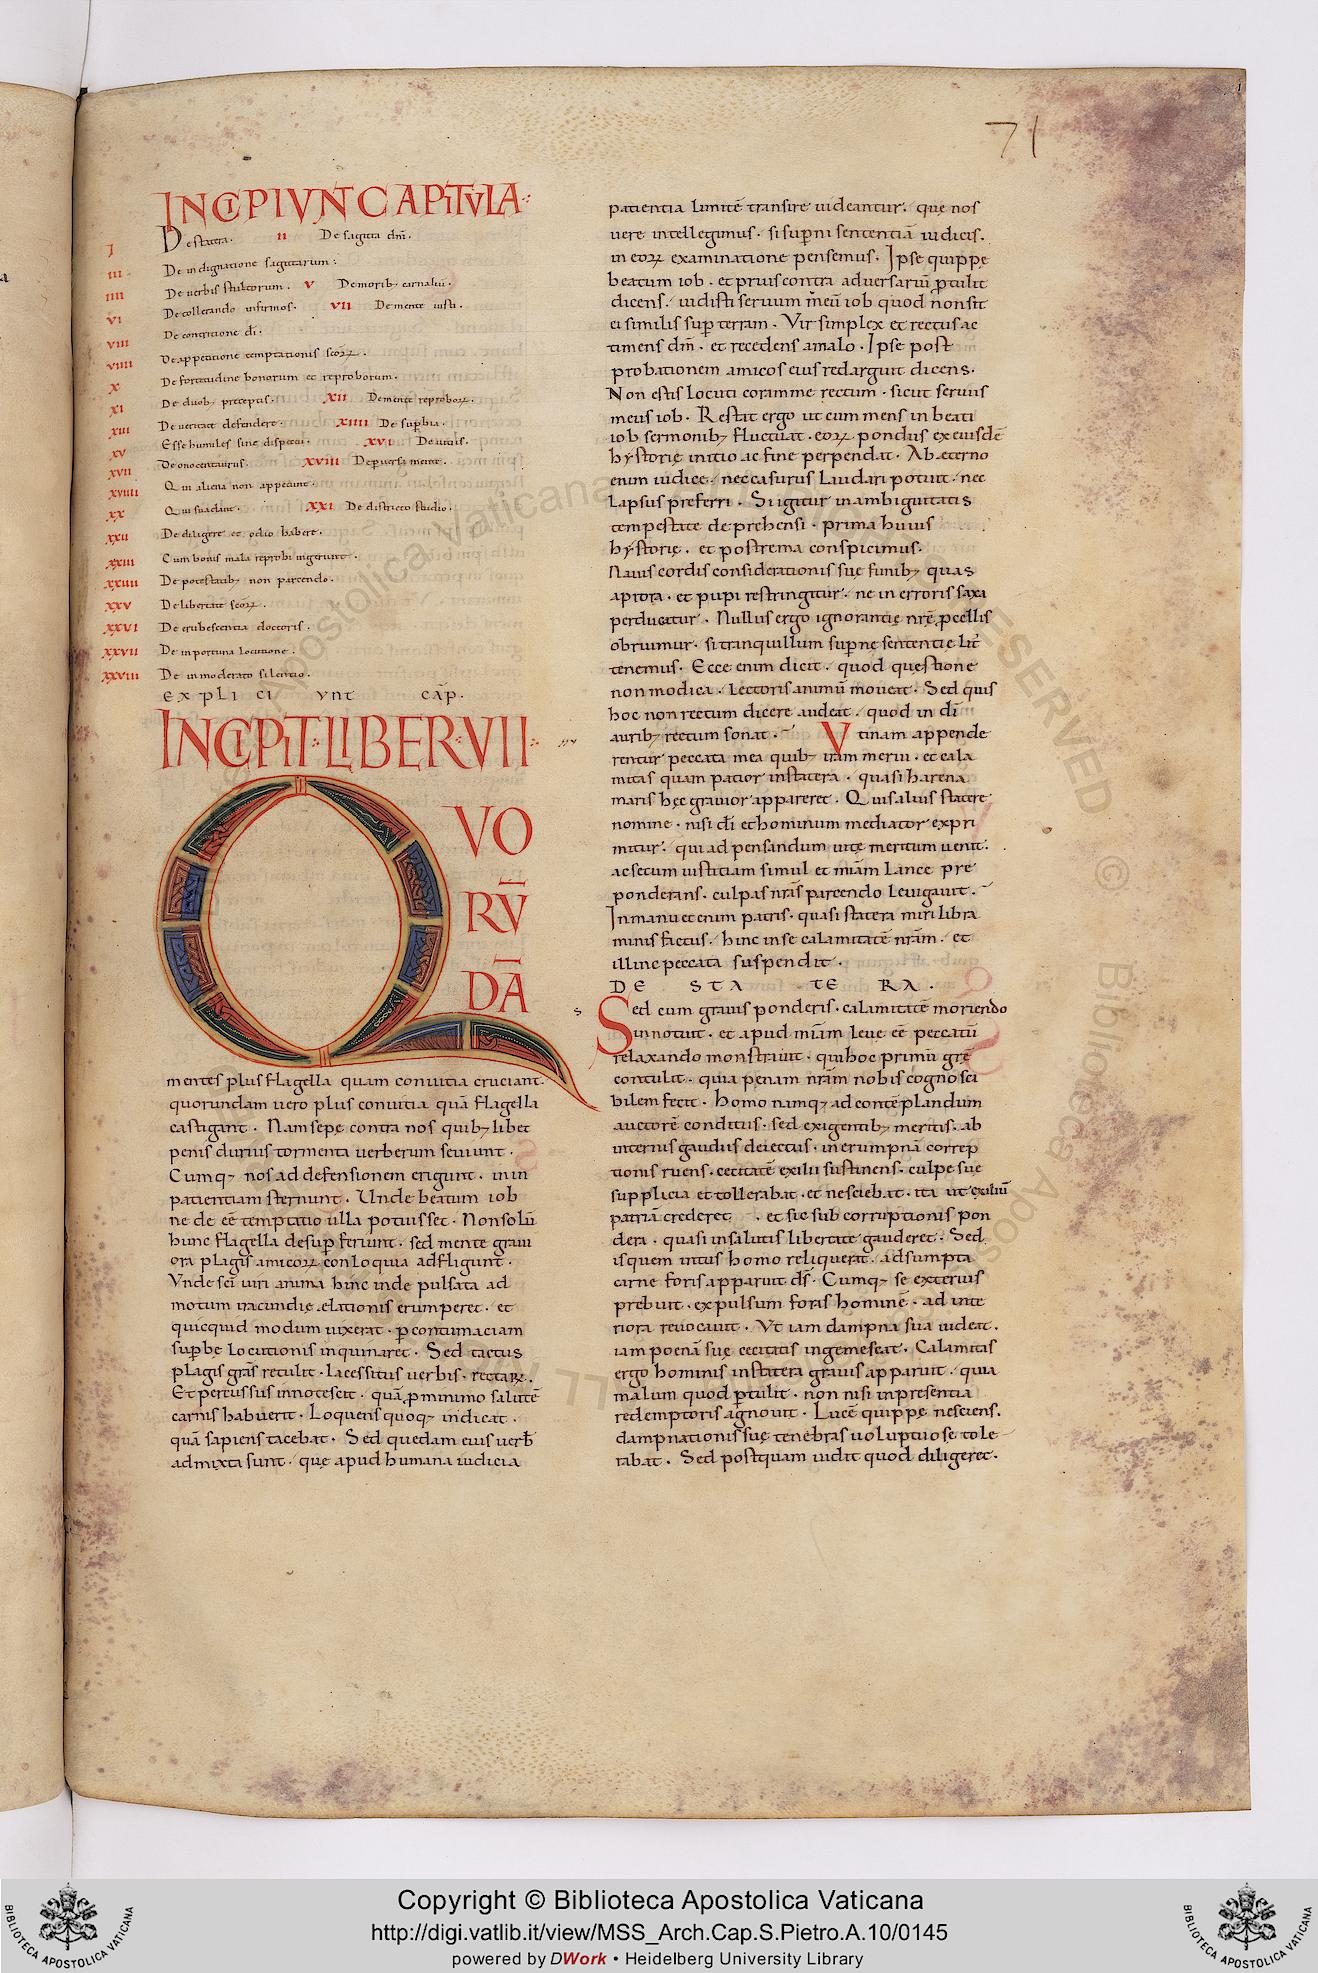 71
INCIPIVNT CAPITVLA
I De statera. II De sagitta dn̄i.
III De indignatione sagittarum:
IIII De verbis stultorum. V De morib; carnaliū.
VI De tollerando infirmos. VII De mente iusti.
VIII De contritione dī.
VIIII De appetitione temptationis scōꝝ.
X De fortitudine bonorum et reproborum.
XI De duob; preceptis. XII De mente reproboꝝ.
XIII De veritate defendere. XIIII De suꝑbia.
XV Esse humiles sine dispectu. XVI De utilis.
XVII De onocentaurus. XVIII De ꝑversa mente.
XVIIII Qui aliena non appetunt.
XX Qui suadent. XXI De districto studio.
XXII De diligere et odio habere.
XXIII Cum bonis mala reprobi ingerunt.
XXIIII De potestatib; non parcendo.
XXV De libertate scōꝝ.
XXVI De erubescentia doctoris.
XXVII De inportuna locutione.
XXVIII De inmoderato silentio.
EXPLICIVNT CAP̄.
INCIPIT LIBER VII
QVO
RV̄
DĀ
mentes plus flagella quam convitia cruciant.
quorundam vero plus convitia quā flagella
castigant. Nam sepę contra nos quib; libet
penis durius tormenta verberum seviunt.
Cumq; nos ad defensionem erigunt. in in
patientiam sternunt. Unde beatum iob
ne de eē temptatio ulla potuisset. Non solū
hunc flagella desuꝑ feriunt. sed mente gravi
ora plagis amicoꝝ conloquia adfligunt.
Vnde scī viri anima hinc inde pulsata ad
motum iracundię elationis erumperet. et
quicquid modum vixerat. ꝑ contumaciam
suꝑbę locutionis inquinaret. Sed tactus
plagis grās retulit. lacessitus verbis. recta rx̄.
Et percussus innotescit. quā ꝓ minimo salutē
carnis habuerit. Loquens quoq; indicat.
quā sapiens tacebat. Sed quedam eius verb̄
admixta sunt. quę apud humana iudicia
patientia limitē transire videantur. quę nos
vere intellegimus. si suꝑni sententiā iudicis.
in eoꝝ examinatione pensemus. Ipse quippę
beatum iob. et prius contra adversariū ꝓtulit
dicens. vidisti servum meū iob quod non sit
ei similis suꝑ terram. Vir simplex et rectus ac
timens dm̄. et recedens a malo. Ipse post
probationem amicos eius redarguit dicens.
Non estis locuti coram me rectum. sicut servus
meus iob. Restat ergo ut cum mens in beati
iob sermonib; fluctuat. eoꝝ pondus ex eiusdē
hystorię initio ac fine perpendat. Ab ęterno
enim iudice. nec casurus laudari potuit. nec
lapsus preferri. Si igitur in ambiguitatis
tempestate deprehensi. prima huius
hystorię. et postrema conspicimus.
Navis cordis considerationis suę funib; quas
a prora. et pupi restringitur. ne in erroris saxa
perducatur. Nullus ergo ignorantię nr̄ę ꝓcellis
obruimur. si tranquillum suꝑnę sententię lit̄
tenemus. Ecce enim dicit. quod quęstione
non modica. Lectoris animū moveat. Sed quis
hoc non rectum dicere audeat. quod in dī
aurib; rectum sonat. Vtinam appende
rentur peccata mea quib; iram merui. et cala
mitas quam patior in statera. quasi harena
maris hęc gravior appareret. Quis alius staterę
nomine. nisi dī et hominum mediator expri
mitur. qui ad pensandum vitę meritum venit.
ac secum iustitiam simul et mīam lance pre
ponderans. culpas nr̄as parcendo levigavit.
In manu etenim patris. quasi statera miri libra
minis factus. hinc in se calamitatē nr̄am. et
illinc peccata suspendit.
DE STATERA.
Sed cum gravis ponderis. calamitatē moriendo
innotuit. et apud mīam leve eē peccatū
relaxando monstravit. qui hoc primū grę
contulit. quia penam nr̄am nobis cognosci
bilem fecit. Homo namq; ad contēplandum
auctorē conditus. sed exigentib; meritis. ab
internis gaudiis deiectus. in erumpnā correp
tionis ruens. cecitatē exilii sustinens. culpę suę
supplicia et tollerabat. et nesciebat. ita ut exiliū
patriā crederet. et sic sub corruptionis pon
dera. quasi in salutis libertate gauderet. Sed
is quem intus homo reliquerat. adsumpta
carne foris apparuit ds̄. Cumq; se exterius
prebuit. expulsum foris hominē. ad inte
riora revocavit. Vt iam dampna sua videat.
iam poenā suę cecitatis ingemescat. Calamitas
ergo hominis in statera gravis apparuit. quia
malum quod ꝑtulit. non nisi in presentia
redemptoris agnovit. Lucē quippę nesciens.
dampnationis suę tenebras voluptuose tole
rabat. Sed postquam vidit quod diligeret.
Copyright © Biblioteca Apostolica Vaticana
http://digi.vatlib.it/view/MSS_Arch.Cap.S.Pietro.A.10/0145
powered by DWork • Heidelberg University Library
BIBLIOTECA APOSTOLICA VATICANA
BIBLIOTECA APOSTOLICA VATICANA